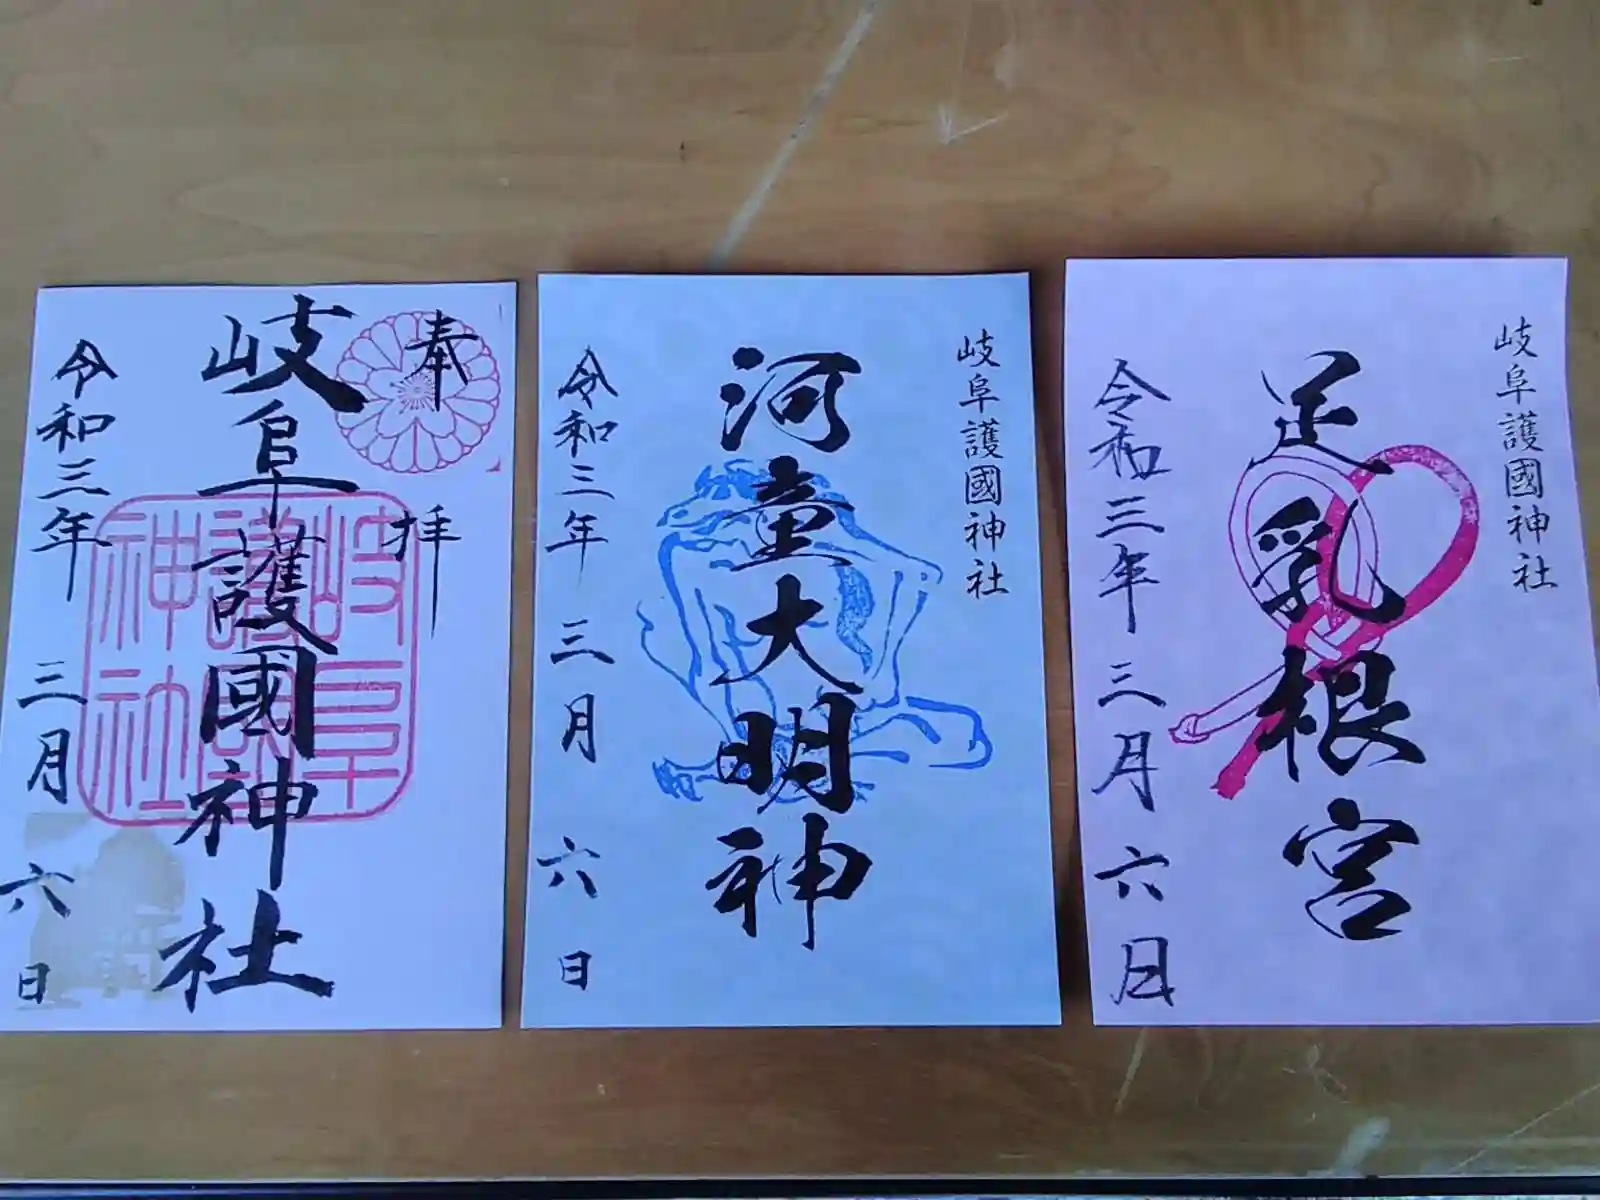 奉拝
岐阜護國神社
岐阜護國神社
令和三年三月六日
岐阜護國神社
河童大明神
令和三年三月六日
岐阜護國神社
足乳根宮
令和三年三月六日